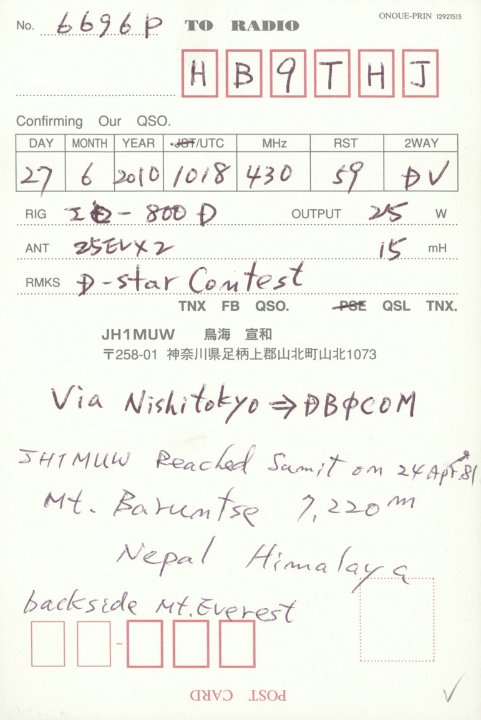 No. 6696P TO RADIO
ONOUE-PRIN 12921515
HB9THJ
Confirming Our QSO.
DAY MONTH YEAR JST/UTC MHz RST 2WAY
27 6 2010 1018 430 59 DV
RIG ID-800D OUTPUT 25 W
ANT 25ELX2 15 mH
RMKS D-star Contest
TNX FB QSO. PSE QSL TNX.
JH1MUW 鳥海 宣和
〒258-01 神奈川県足柄上郡山北町山北1073
Via Nishitokyo ⇒ DBØCOM
JH1MUW Reached Sumit on 24 Apr. 81
Mt. Baruntse 7,220m
Nepal Himalaya
backside Mt. Everest
POST CARD